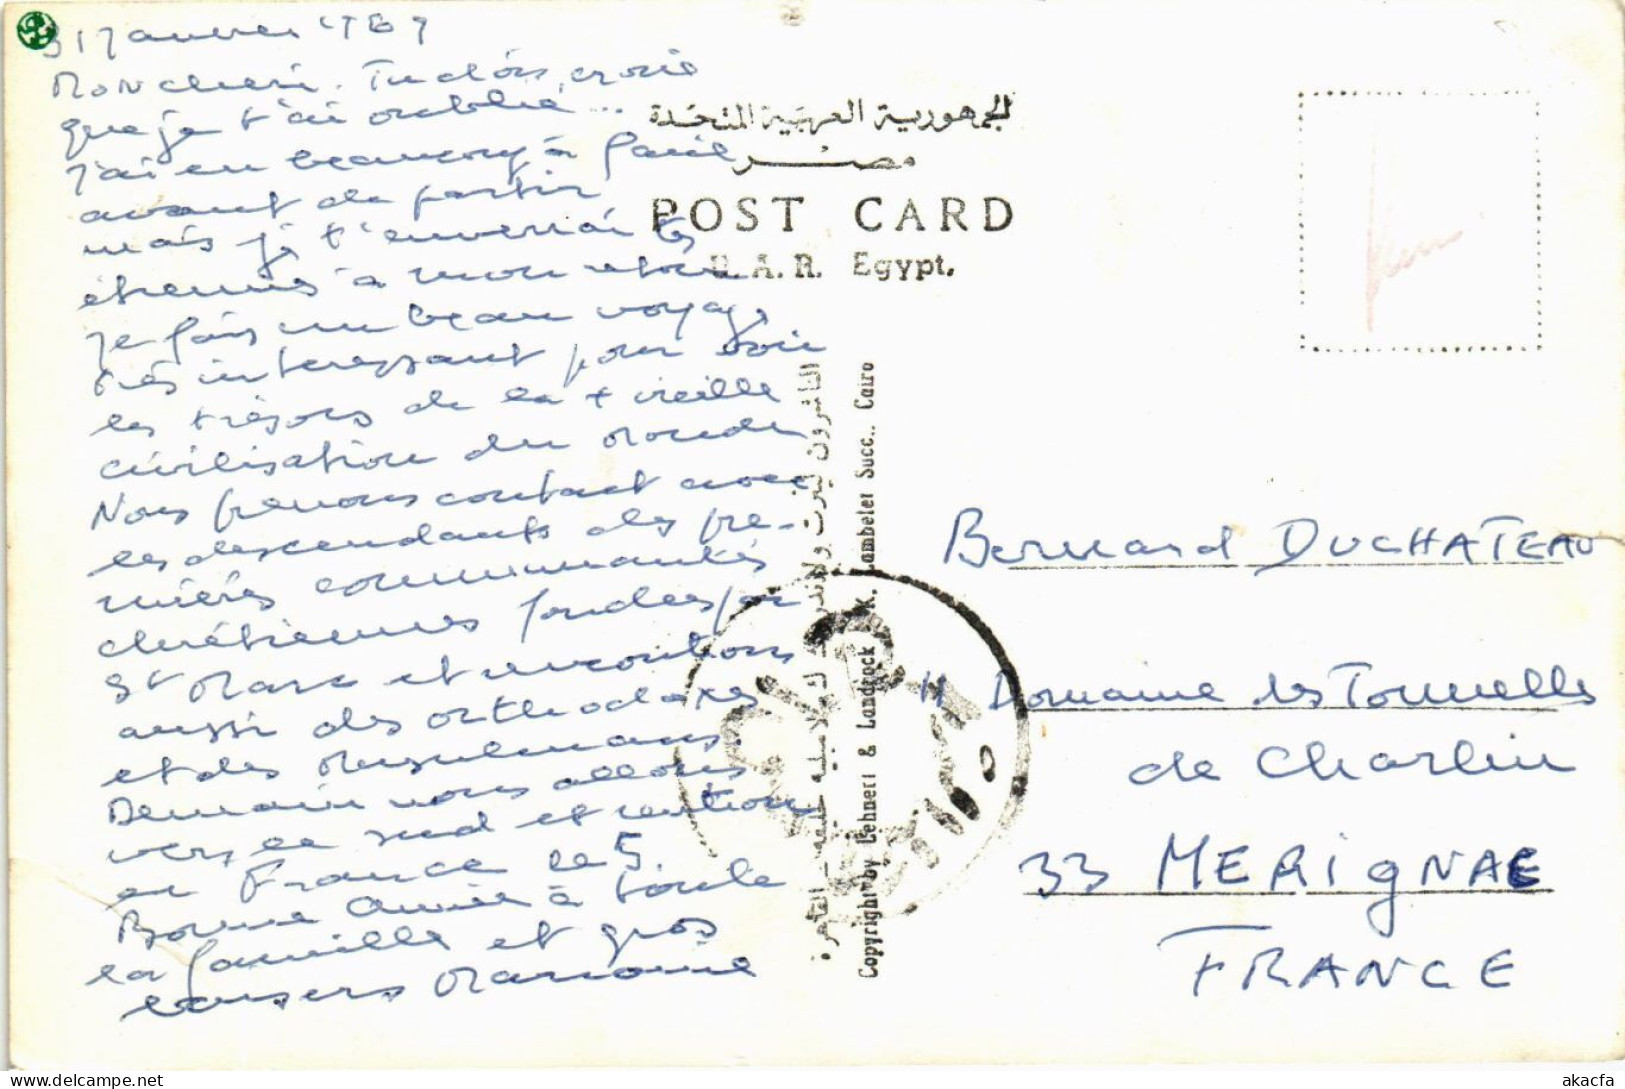 31 janvier 1969
Mon chéri. Tu dois croire
que je t'ai oublié...
j'ai eu beaucoup à faire
avant de partir
mais je t'enverrai tes
étrennes à mon retour
je fais un beau voyage
très interessant pour voir
les trésors de la + vieille
civilisation du monde
Nous prenons contact avec
les descendants des pre-
mières communautés
chrétiennes fondées par
St Marc et rencontrons
aussi des orthodoxes
et des Musulmans.
Demain nous allons
vers le sud et rentrons
en France le 5.
Bonne année à toute
la famille et gros
baisers Marraine
الجمهورية العربية المتحدة
مصر
POST CARD
U. A. R. Egypt.
الناشرون لينرت ولاندروك
القاهرة
Copyright by Lehnert & Landrock K. Lambelet Succ., Cairo
Bernard DUCHATEAU
11 Domaine des Tournelles
de Charlin
33 MERIGNAC
FRANCE
akacfa
delcampe.net